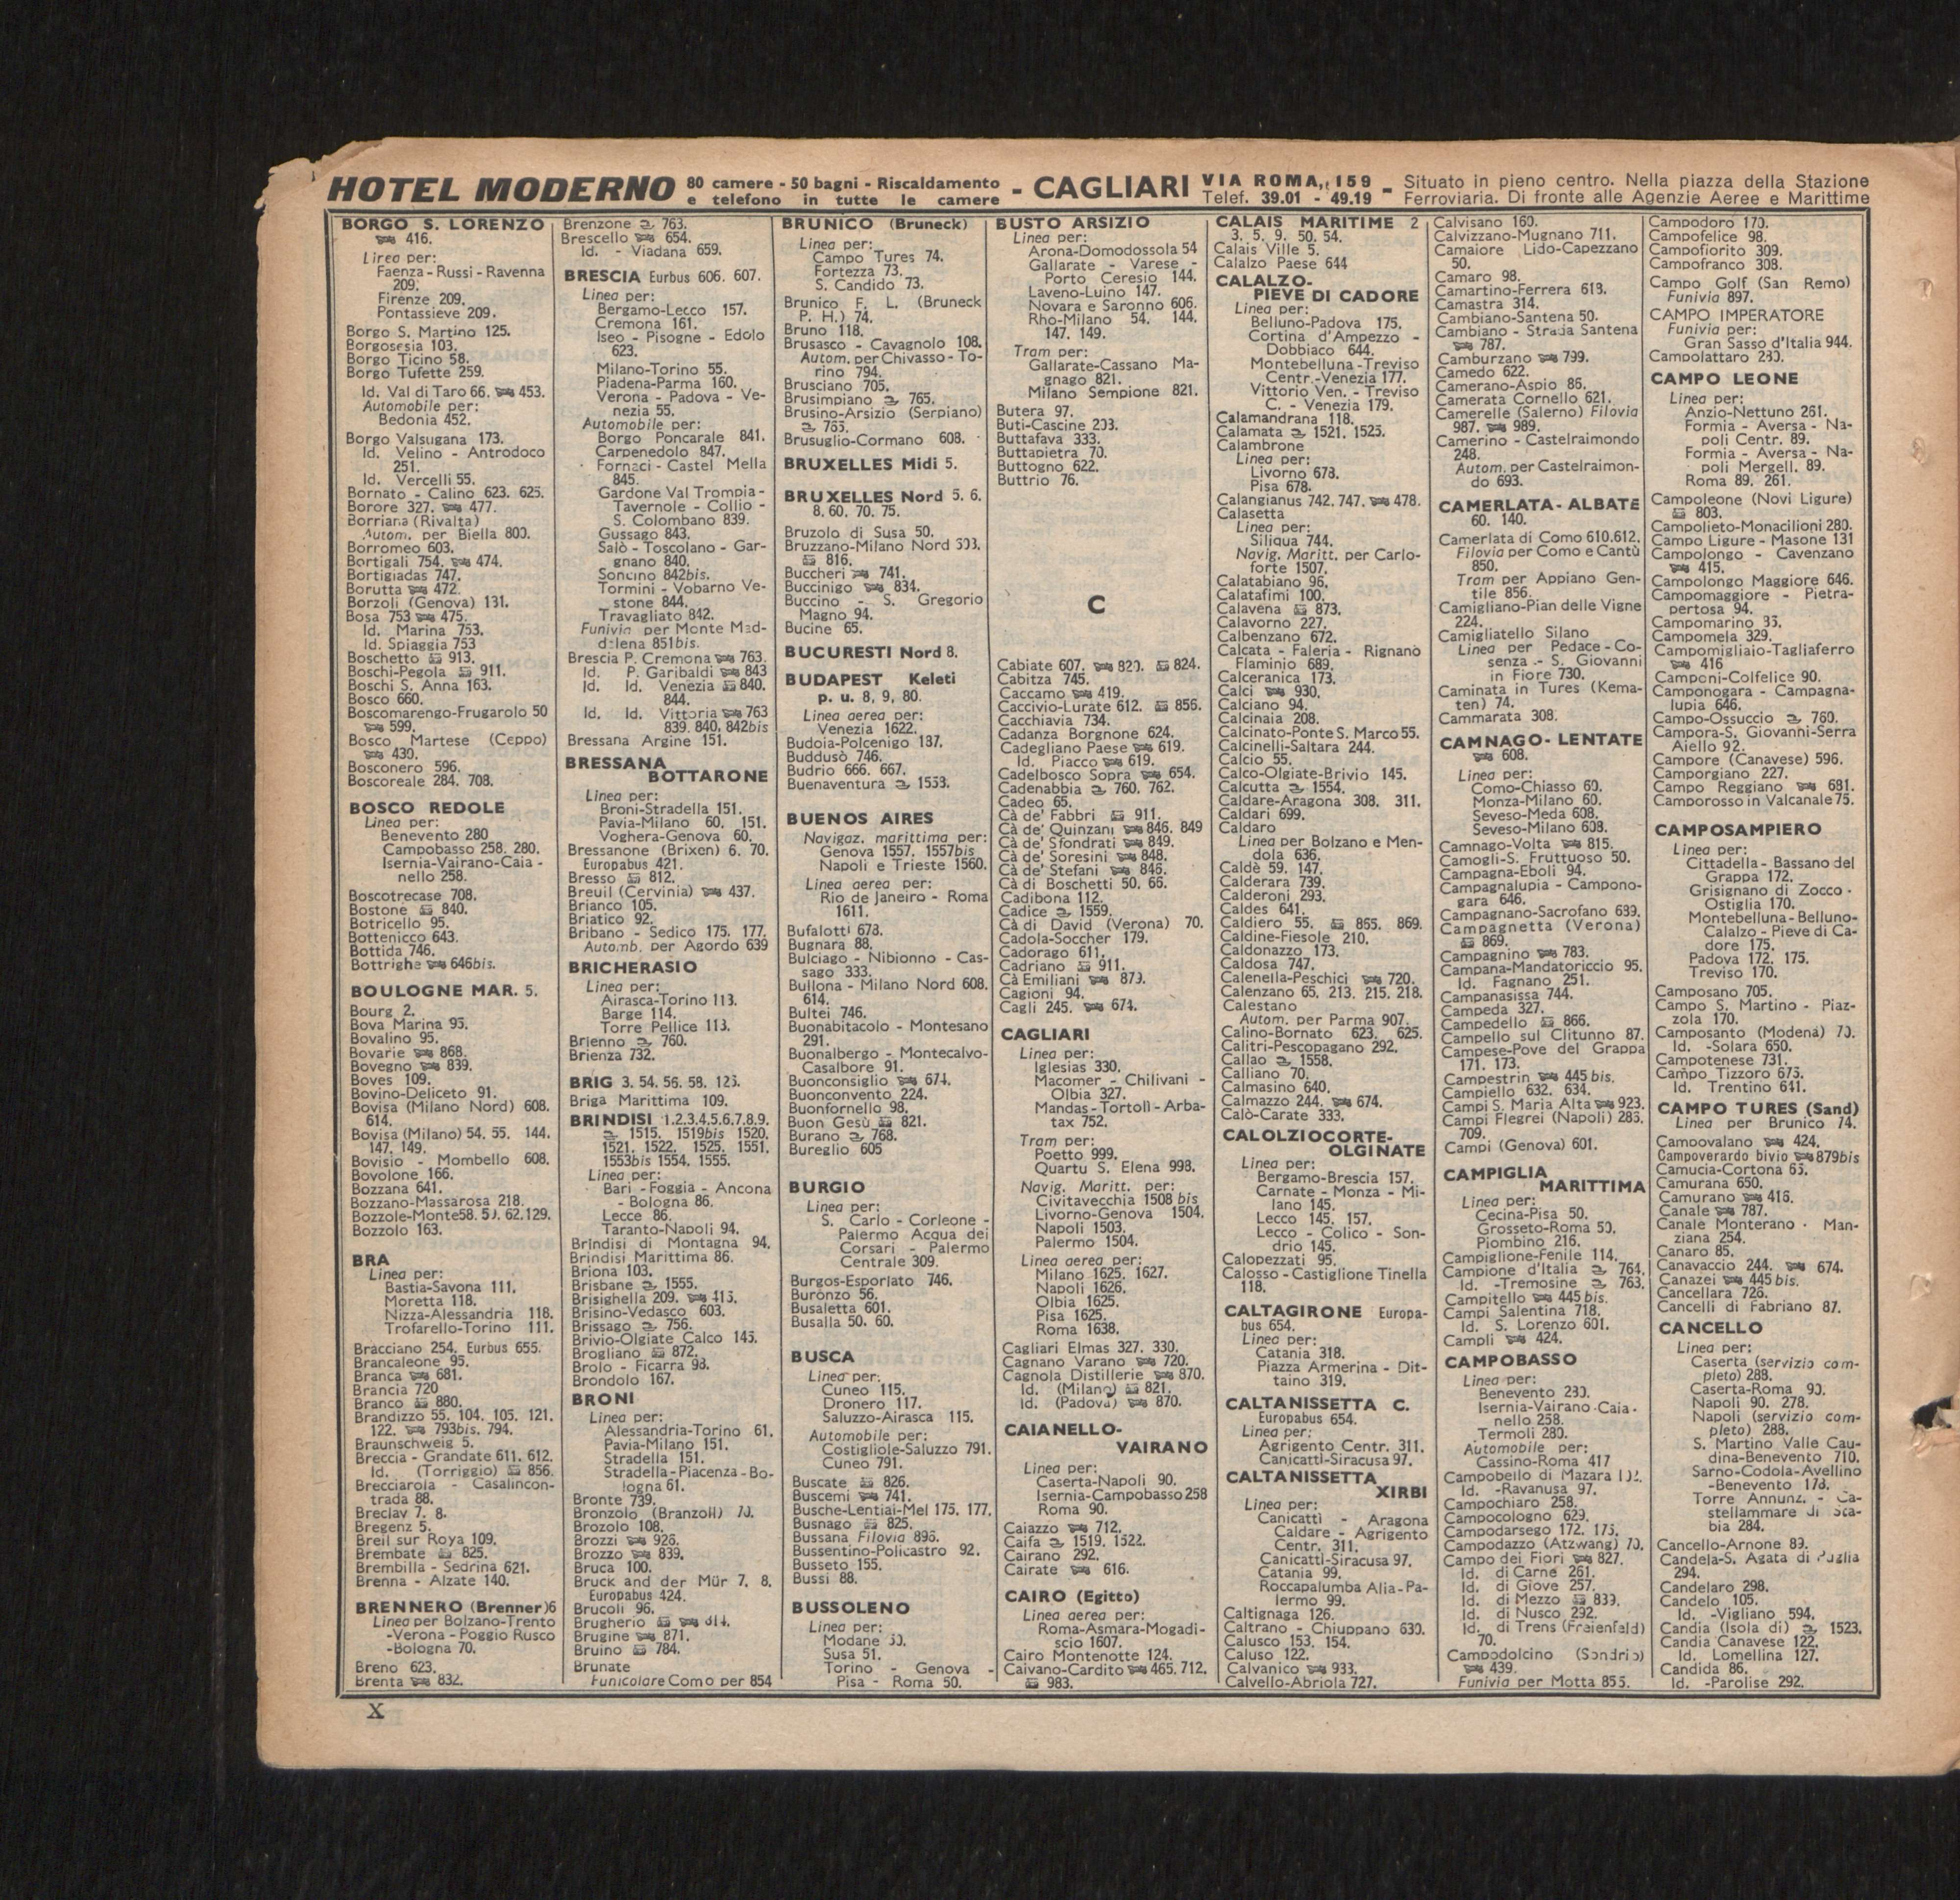 HOTEL MODERNO 80 camere - 50 bagni - Riscaldamento e telefono in tutte le camere - CAGLIARI VIA ROMA, 159 Telef. 39.01 - 49.19 - Situato in pieno centro. Nella piazza della Stazione Ferroviaria. Di fronte alle Agenzie Aeree e Marittime
BORGO S. LORENZO
416.
Linea per:
Faenza - Russi - Ravenna
209.
Firenze 209.
Pontassieve 209.
Borgo S. Martino 125.
Borgosesia 103.
Borgo Ticino 58.
Borgo Tufette 259.
Id. Val di Taro 66. 453.
Automobile per:
Bedonia 452.
Borgo Valsugana 173.
Id. Velino - Antrodoco
251.
Id. Vercelli 55.
Bornato - Calino 623. 625.
Borore 327. 477.
Borriana (Rivalta)
Autom. per Biella 800.
Borromeo 603.
Bortigali 754. 474.
Bortigiadas 747.
Borutta 472.
Borzoli (Genova) 131.
Bosa 753 475.
Id. Marina 753.
Id. Spiaggia 753
Boschetto 913.
Boschi-Pegola 911.
Boschi S. Anna 163.
Bosco 660.
Boscomarengo-Frugarolo 50
599.
Bosco Martese (Ceppo)
430.
Bosconero 596.
Boscoreale 284. 708.
BOSCO REDOLE
Linea per:
Benevento 280
Campobasso 258. 280.
Isernia-Vairano-Caia -
nello 258.
Boscotrecase 708.
Bostone 840.
Botricello 95.
Bottenicco 643.
Bottida 746.
Bottrighe 646bis.
BOULOGNE MAR. 5.
Bourg 2.
Bova Marina 95.
Bovalino 95.
Bovarie 868.
Bovegno 839.
Boves 109.
Bovino-Deliceto 91.
Bovisa (Milano Nord) 608.
614.
Bovisa (Milano) 54. 55. 144.
147. 149.
Bovisio - Mombello 608.
Bovolone 166.
Bozzana 641.
Bozzano-Massarosa 218.
Bozzole-Monte 58. 59. 62.129.
Bozzolo 163.
BRA
Linea per:
Bastia-Savona 111.
Moretta 118.
Nizza-Alessandria 118.
Trofarello-Torino 111.
Bracciano 254. Eurbus 655.
Brancaleone 95.
Branca 681.
Brancia 720
Branco 880.
Brandizzo 55. 104. 105. 121.
122. 793bis. 794.
Braunschweig 5.
Breccia - Grandate 611. 612.
Id. (Torriggio) 856.
Brecciarola - Casalincon-
trada 88.
Breclav 7. 8.
Bregenz 5.
Breil sur Roya 109.
Brembate 825.
Brembilla - Sedrina 621.
Brenna - Alzate 140.
BRENNERO (Brenner)6
Linea per Bolzano-Trento
-Verona - Poggio Rusco
-Bologna 70.
Breno 623.
Brenta 832.
Brenzone 763.
Brescello 654.
Id. - Viadana 659.
BRESCIA Eurbus 606. 607.
Linea per:
Bergamo-Lecco 157.
Cremona 161.
Iseo - Pisogne - Edolo
623.
Milano-Torino 55.
Piadena-Parma 160.
Verona - Padova - Ve-
nezia 55.
Automobile per:
Borgo Poncarale 841.
Carpenedolo 847.
Fornaci - Castel Mella
845.
Gardone Val Trompia -
Tavernole - Collio -
S. Colombano 839.
Gussago 843.
Salò - Toscolano - Gar-
gnano 840.
Soncino 842bis.
Tormini - Vobarno Ve-
stone 844.
Travagliato 842.
Funivia per Monte Mad-
dalena 851bis.
Brescia P. Cremona 763.
Id. P. Garibaldi 843
Id. Id. Venezia 840.
844.
Id. Id. Vittoria 763
839. 840. 842bis
Bressana Argine 151.
BRESSANA
BOTTARONE
Linea per:
Broni-Stradella 151.
Pavia-Milano 60. 151.
Voghera-Genova 60.
Bressanone (Brixen) 6. 70.
Europabus 421.
Bresso 812.
Breuil (Cervinia) 437.
Brianco 105.
Briatico 92.
Bribano - Sedico 175. 177.
Automb. per Agordo 639
BRICHERASIO
Linea per:
Airasca-Torino 113.
Barge 114.
Torre Pellice 113.
Brienno 760.
Brienza 732.
BRIG 3. 54. 56. 58. 125.
Briga Marittima 109.
BRINDISI 1.2.3.4.5.6.7.8.9.
1515. 1519bis 1520.
1521. 1522. 1525. 1551.
1553bis 1554. 1555.
Linea per:
Bari - Foggia - Ancona
- Bologna 86.
Lecce 86.
Taranto-Napoli 94.
Brindisi di Montagna 94.
Brindisi Marittima 86.
Briona 103.
Brisbane 1555.
Brisighella 209. 415.
Brisino-Vedasco 603.
Brissago 756.
Brivio-Olgiate Calco 145.
Brogliano 872.
Brolo - Ficarra 98.
Brondolo 167.
BRONI
Linea per:
Alessandria-Torino 61.
Pavia-Milano 151.
Stradella 151.
Stradella-Piacenza - Bo-
logna 61.
Bronte 739.
Bronzolo (Branzoll) 70.
Brozolo 108.
Brozzi 926.
Brozzo 839.
Bruca 100.
Bruck and der Mür 7. 8.
Europabus 424.
Brucoli 96.
Brugherio 814.
Brugine 871.
Bruino 784.
Brunate
Funicolare Como per 854
BRUNICO (Bruneck)
Linea per:
Campo Tures 74.
Fortezza 73.
S. Candido 73.
Brunico F. L. (Bruneck
P. H.) 74.
Bruno 118.
Brusasco - Cavagnolo 108.
Autom. per Chivasso - To-
rino 794.
Brusciano 705.
Brusimpiano 765.
Brusino-Arsizio (Serpiano)
765.
Brusuglio-Cormano 608.
BRUXELLES Midi 5.
BRUXELLES Nord 5. 6.
8. 60. 70. 75.
Bruzolo di Susa 50.
Bruzzano-Milano Nord 503.
816.
Buccheri 741.
Buccinigo 834.
Buccino - S. Gregorio
Magno 94.
Bucine 65.
BUCURESTI Nord 8.
BUDAPEST Keleti
p. u. 8, 9, 80.
Linea aerea per:
Venezia 1622.
Budoia-Polcenigo 187.
Buddusò 746.
Budrio 666. 667.
Buenaventura 1553.
BUENOS AIRES
Navigaz. marittima per:
Genova 1557. 1557bis
Napoli e Trieste 1560.
Linea aerea per:
Rio de Janeiro - Roma
1611.
Bufalotti 673.
Bugnara 88.
Bulciago - Nibionno - Cas-
sago 333.
Bullona - Milano Nord 608.
614.
Bultei 746.
Buonabitacolo - Montesano
291.
Buonalbergo - Montecalvo-
Casalbore 91.
Buonconsiglio 674.
Buonconvento 224.
Buonfornello 98.
Buon Gesù 821.
Burano 768.
Bureglio 605
BURGIO
Linea per:
S. Carlo - Corleone -
Palermo Acqua dei
Corsari - Palermo
Centrale 309.
Burgos-Esporlato 746.
Buronzo 56.
Busaletta 601.
Busalla 50. 60.
BUSCA
Linea per:
Cuneo 115.
Dronero 117.
Saluzzo-Airasca 115.
Automobile per:
Costigliole-Saluzzo 791.
Cuneo 791.
Buscate 826.
Buscemi 741.
Busche-Lentiai-Mel 175. 177.
Busnago 825.
Bussana Filovia 896.
Bussentino-Policastro 92.
Busseto 155.
Bussi 88.
BUSSOLENO
Linea per:
Modane 50.
Susa 51.
Torino - Genova -
Pisa - Roma 50.
BUSTO ARSIZIO
Linea per:
Arona-Domodossola 54
Gallarate - Varese -
Porto Ceresio 144.
Laveno-Luino 147.
Novara e Saronno 606.
Rho-Milano 54. 144.
147. 149.
Tram per:
Gallarate-Cassano Ma-
gnago 821.
Milano Sempione 821.
Butera 97.
Buti-Cascine 203.
Buttafava 333.
Buttapietra 70.
Buttogno 622.
Buttrio 76.
C
Cabiate 607. 820. 824.
Cabitza 745.
Caccamo 419.
Caccivio-Lurate 612. 856.
Cacchiavia 734.
Cadanza Borgnone 624.
Cadegliano Paese 619.
Id. Piacco 619.
Cadelbosco Sopra 654.
Cadenabbia 760. 762.
Cadeo 65.
Cà de' Fabbri 911.
Cà de' Quinzani 846. 849
Cà de' Sfondrati 849.
Cà de' Soresini 848.
Cà de' Stefani 846.
Cà di Boschetti 50. 66.
Cadibona 112.
Cadice 1559.
Cà di David (Verona) 70.
Cadola-Soccher 179.
Cadorago 611.
Cadriano 911.
Cà Emiliani 873.
Cagioni 94.
Cagli 245. 674.
CAGLIARI
Linea per:
Iglesias 330.
Macomer - Chilivani -
Olbia 327.
Mandas-Tortolì-Arba-
tax 752.
Tram per:
Poetto 999.
Quartu S. Elena 998.
Navig. Maritt. per:
Civitavecchia 1508 bis
Livorno-Genova 1504.
Napoli 1503.
Palermo 1504.
Linea aerea per:
Milano 1625. 1627.
Napoli 1626.
Olbia 1625.
Pisa 1625.
Roma 1638.
Cagliari Elmas 327. 330.
Cagnano Varano 720.
Cagnola Distillerie 870.
Id. (Milano) 821.
Id. (Padova) 870.
CAIANELLO-
VAIRANO
Linea per:
Caserta-Napoli 90.
Isernia-Campobasso 258
Roma 90.
Caiazzo 712.
Caifa 1519. 1522.
Cairano 292.
Cairate 616.
CAIRO (Egitto)
Linea aerea per:
Roma-Asmara-Mogadi-
scio 1607.
Cairo Montenotte 124.
Caivano-Cardito 465. 712.
983.
CALAIS MARITIME 2
3. 5. 9. 50. 54.
Calais Ville 5.
Calalzo Paese 644
CALALZO-
PIEVE DI CADORE
Linea per:
Belluno-Padova 175.
Cortina d'Ampezzo -
Dobbiaco 644.
Montebelluna-Treviso
Centr.-Venezia 177.
Vittorio Ven. - Treviso
C. - Venezia 179.
Calamandrana 118.
Calamata 1521. 1525.
Calambrone
Linea per:
Livorno 678.
Pisa 678.
Calangianus 742. 747. 478.
Calasetta
Linea per:
Siliqua 744.
Navig. Maritt. per Carlo-
forte 1507.
Calatabiano 96.
Calatafimi 100.
Calavena 873.
Calavorno 227.
Calbenzano 672.
Calcata - Faleria - Rignano
Flaminio 689.
Calceranica 173.
Calci 930.
Calciano 94.
Calcinaia 208.
Calcinato-Ponte S. Marco 55.
Calcinelli-Saltara 244.
Calcio 55.
Calco-Olgiate-Brivio 145.
Calcutta 1554.
Caldare-Aragona 308. 311.
Caldari 699.
Caldaro
Linea per Bolzano e Men-
dola 636.
Caldè 59. 147.
Calderara 739.
Calderoni 293.
Caldes 641.
Caldiero 55. 865. 869.
Caldine-Fiesole 210.
Caldonazzo 173.
Caldosa 747.
Calenella-Peschici 720.
Calenzano 65. 213. 215. 218.
Calestano
Autom. per Parma 907.
Calino-Bornato 623. 625.
Calitri-Pescopagano 292.
Callao 1558.
Calliano 70.
Calmasino 640.
Calmazzo 244. 674.
Calò-Carate 333.
CALOLZIOCORTE-
OLGINATE
Linea per:
Bergamo-Brescia 157.
Carnate - Monza - Mi-
lano 145.
Lecco 145. 157.
Lecco - Colico - Son-
drio 145.
Calopezzati 95.
Calosso - Castiglione Tinella
118.
CALTAGIRONE Europa-
bus 654.
Linea per:
Catania 318.
Piazza Armerina - Dit-
taino 319.
CALTANISSETTA C.
Europabus 654.
Linea per:
Agrigento Centr. 311.
Canicattì-Siracusa 97.
CALTANISSETTA
XIRBI
Linea per:
Canicattì - Aragona
Caldare - Agrigento
Centr. 311.
Canicattì-Siracusa 97.
Catania 99.
Roccapalumba Alia-Pa-
lermo 99.
Caltignaga 126.
Caltrano - Chiuppano 630.
Calusco 153. 154.
Caluso 122.
Calvanico 933.
Calvello-Abriola 727.
Calvisano 160.
Calvizzano-Mugnano 711.
Camaiore Lido-Capezzano
50.
Camaro 98.
Camartino-Ferrera 613.
Camastra 314.
Cambiano-Santena 50.
Cambiano - Strada Santena
787.
Camburzano 799.
Camedo 622.
Camerano-Aspio 86.
Camerata Cornello 621.
Camerelle (Salerno) Filovia
987. 989.
Camerino - Castelraimondo
248.
Autom. per Castelraimon-
do 693.
CAMERLATA-ALBATE
60. 140.
Camerlata di Como 610.612.
Filovia per Como e Cantù
850.
Tram per Appiano Gen-
tile 856.
Camigliano-Pian delle Vigne
224.
Camigliatello Silano
Linea per Pedace-Co-
senza - S. Giovanni
in Fiore 730.
Caminata in Tures (Kema-
ten) 74.
Cammarata 308.
CAMNAGO-LENTATE
608.
Linea per:
Como-Chiasso 60.
Monza-Milano 60.
Seveso-Meda 608.
Seveso-Milano 608.
Camnago-Volta 815.
Camogli-S. Fruttuoso 50.
Campagna-Eboli 94.
Campagnalupia - Campono-
gara 646.
Campagnano-Sacrofano 689.
Campagnetta (Verona)
869.
Campagnino 783.
Campana-Mandatoriccio 95.
Id. Fagnano 251.
Campanasissa 744.
Campeda 327.
Campedello 866.
Campello sul Clitunno 87.
Campese-Pove del Grappa
171. 173.
Campestrin 445 bis.
Campiello 632. 634.
Campi S. Maria Alta 923.
Campi Flegrei (Napoli) 283.
709.
Campi (Genova) 601.
CAMPIGLIA
MARITTIMA
Linea per:
Cecina-Pisa 50.
Grosseto-Roma 50.
Piombino 216.
Campiglione-Fenile 114.
Campione d'Italia 764.
Id. -Tremosine 763.
Campitello 445 bis.
Campi Salentina 718.
Id. S. Lorenzo 601.
Campli 424.
CAMPOBASSO
Linea per:
Benevento 280.
Isernia-Vairano Caia-
nello 258.
Termoli 280.
Automobile per:
Cassino-Roma 417
Campobello di Mazara 102.
Id. -Ravanusa 97.
Campochiaro 258.
Campocologno 629.
Campodarsego 172. 175.
Campodazzo (Atzwang) 70.
Campo dei Fiori 827.
Id. di Carne 261.
Id. di Giove 257.
Id. di Mezzo 839.
Id. di Nusco 292.
Id. di Trens (Freienfeld)
70.
Campodolcino (Sondrio)
439.
Funivia per Motta 855.
Campodoro 170.
Campofelice 98.
Campofiorito 309.
Campofranco 308.
Campo Golf (San Remo)
Funivia 897.
CAMPO IMPERATORE
Funivia per:
Gran Sasso d'Italia 944.
Campolattaro 280.
CAMPO LEONE
Linea per:
Anzio-Nettuno 261.
Formia - Aversa - Na-
poli Centr. 89.
Formia - Aversa - Na-
poli Mergell. 89.
Roma 89. 261.
Campoleone (Novi Ligure)
803.
Campolieto-Monacilioni 280.
Campo Ligure - Masone 131
Campolongo - Cavenzano
415.
Campolongo Maggiore 646.
Campomaggiore - Pietra-
pertosa 94.
Campomarino 35.
Campomela 329.
Campomigliaio-Tagliaferro
416
Camponi-Colfelice 90.
Camponogara - Campagna-
lupia 646.
Campo-Ossuccio 760.
Campora-S. Giovanni-Serra
Aiello 92.
Campore (Canavese) 596.
Camporgiano 227.
Campo Reggiano 681.
Camporosso in Valcanale 75.
CAMPOSAMPIERO
Linea per:
Cittadella - Bassano del
Grappa 172.
Grisignano di Zocco -
Ostiglia 170.
Montebelluna - Belluno-
Calalzo - Pieve di Ca-
dore 175.
Padova 172. 175.
Treviso 170.
Camposano 705.
Campo S. Martino - Piaz-
zola 170.
Camposanto (Modena) 70.
Id. -Solara 650.
Campotenese 731.
Campo Tizzoro 673.
Id. Trentino 641.
CAMPO TURES (Sand)
Linea per Brunico 74.
Campovalano 424.
Campoverardo bivio 879bis
Camucia-Cortona 65.
Camurana 650.
Camurano 416.
Canale 787.
Canale Monterano - Man-
ziana 254.
Canaro 85.
Canavaccio 244. 674.
Canazei 445 bis.
Cancellara 726.
Cancelli di Fabriano 87.
CANCELLO
Linea per:
Caserta (servizio com-
pleto) 288.
Caserta-Roma 90.
Napoli 90. 278.
Napoli (servizio com-
pleto) 288.
S. Martino Valle Cau-
dina-Benevento 710.
Sarno-Codola-Avellino
-Benevento 178.
Torre Annunz. - Ca-
stellammare di Sta-
bia 284.
Cancello-Arnone 89.
Candela-S. Agata di Puglia
294.
Candelaro 298.
Candelo 105.
Id. -Vigliano 594.
Candia (Isola di) 1523.
Candia Canavese 122.
Id. Lomellina 127.
Candida 86.
Id. -Parolise 292.
X